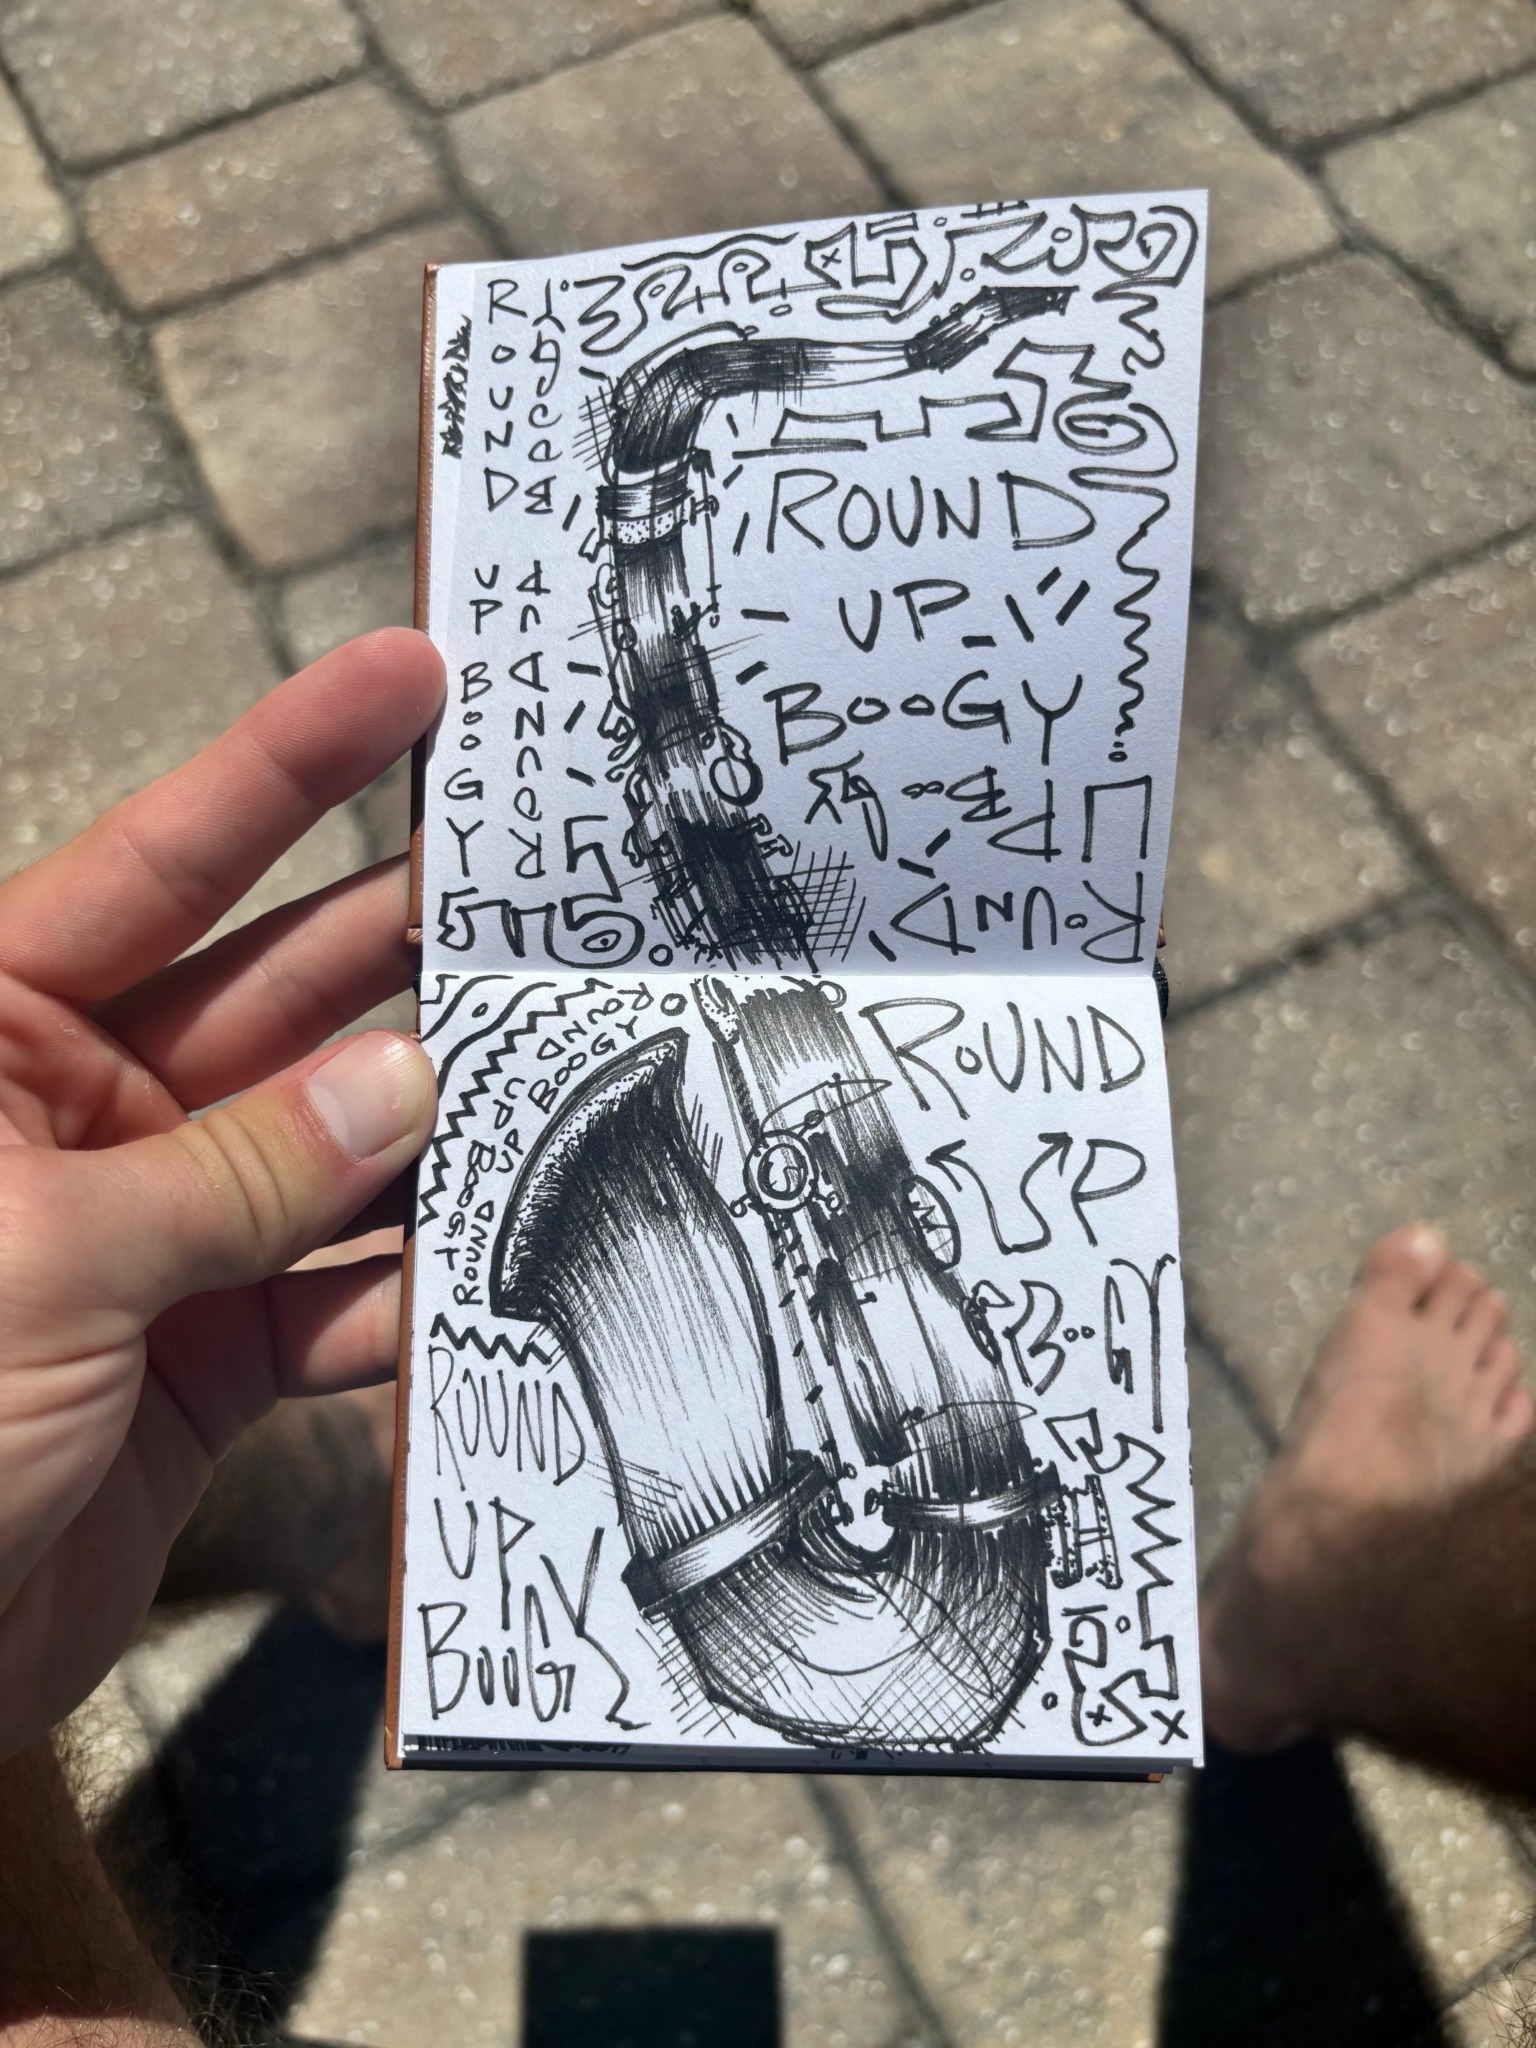 ROUND
UP
BOOGY
ROUND
UP
BOOGY
ROUND
UP
BOOGY
ROUND
UP
ROUND
UP
BOOGY
BOOGY
ROUND
UP
ROUND
UP
BOOGY
ROUND
UP
BOOGY